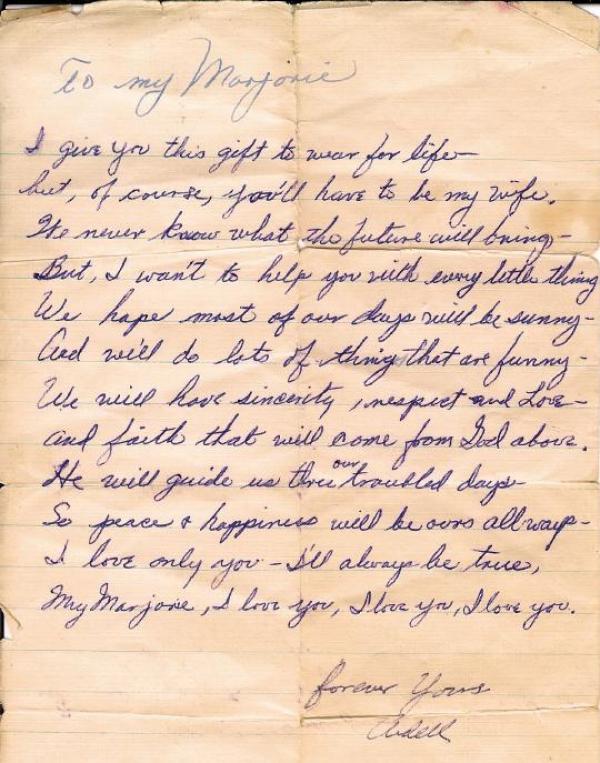 To my Marjorie
I give you this gift to wear for life—
but, of course, you'll have to be my wife.
We never know what the future will bring—
But, I wan't to help you with every little thing
We hope most of our days will be sunny—
And we'll do lots of things that are funny—
We will have sincerity, respect and Love—
and faith that will come from God above.
He will guide us thru our troubled days
So peace & happiness will be ours allways—
I love only you — I'll always be true,
My Marjorie, I love you, I love you, I love you.
forever Yours
Ardell